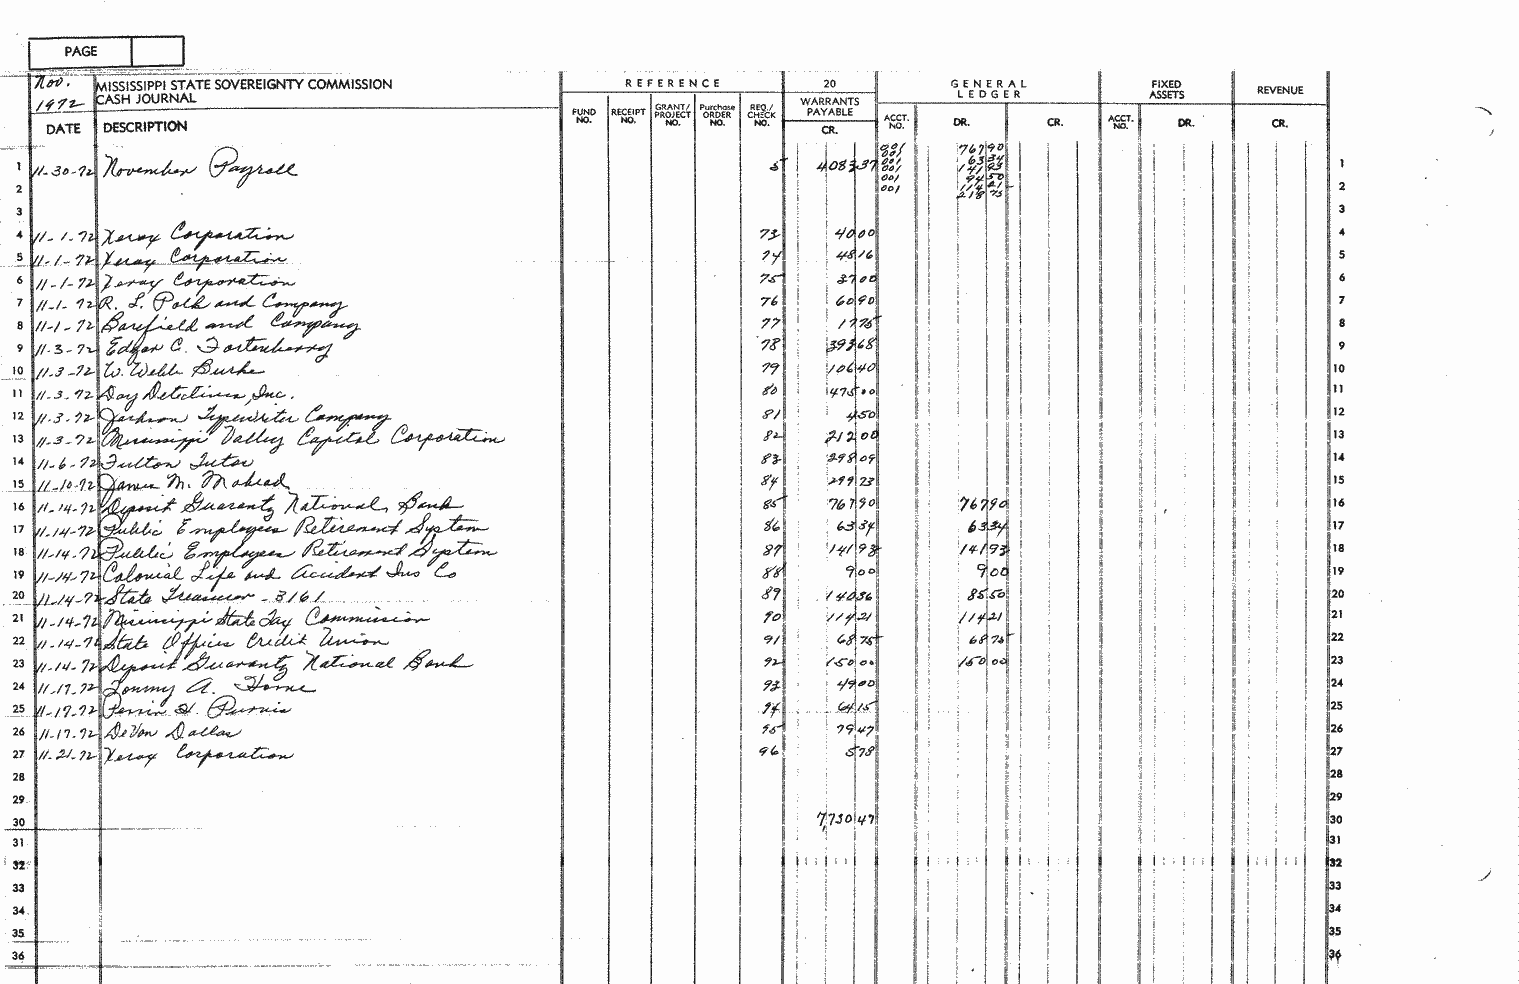 PAGE
Nov. 1972 MISSISSIPPI STATE SOVEREIGNTY COMMISSION
CASH JOURNAL
REFERENCE 20 GENERAL LEDGER FIXED ASSETS REVENUE
DATE DESCRIPTION FUND NO. RECEIPT NO. GRANT/ PROJECT NO. Purchase ORDER NO. REQ./ CHECK NO. WARRANTS PAYABLE CR. ACCT. NO. DR. CR. ACCT. NO. DR. CR.
001 767 90
001 63 34
1 11-30-72 November Payroll 5 4083 37 001 141 93 1
001 94 50
001 114 21
2 001 218 75 2
3 3
4 11-1-72 Xerox Corporation 73 40 00 4
5 11-1-72 Xerox Corporation 74 48 16 5
6 11-1-72 Xerox Corporation 75 37 00 6
7 11-1-72 R. L. Polk and Company 76 60 90 7
8 11-1-72 Barefield and Company 77 17 75 8
9 11-3-72 Edgar C. Fortenberry 78 393 68 9
10 11-3-72 W. Webb Burke 79 106 40 10
11 11-3-72 Day Detectives, Inc. 80 475 00 11
12 11-3-72 Jackson Typewriter Company 81 4 50 12
13 11-3-72 Mississippi Valley Capital Corporation 82 212 00 13
14 11-6-72 Fulton Tutor 83 298 09 14
15 11-10-72 James M. Mohead 84 299 23 15
16 11-14-72 Deposit Guaranty National Bank 85 767 90 767 90 16
17 11-14-72 Public Employees Retirement System 86 63 34 63 34 17
18 11-14-72 Public Employees Retirement System 87 141 93 141 93 18
19 11-14-72 Colonial Life and Accident Ins Co 88 9 00 9 00 19
20 11-14-72 State Treasurer - 3161 89 140 36 85 50 20
21 11-14-72 Mississippi State Tax Commission 90 114 21 114 21 21
22 11-14-72 State Offices Credit Union 91 68 75 68 75 22
23 11-14-72 Deposit Guaranty National Bank 92 150 00 150 00 23
24 11-17-72 Tommy A. Horne 93 49 00 24
25 11-17-72 Perrin H. Purvis 94 64 15 25
26 11-17-72 DeVan Dallas 95 79 47 26
27 11-21-72 Xerox Corporation 96 5 78 27
28 28
29 29
30 7,730 47 30
31 31
32 32
33 33
34 34
35 35
36 36